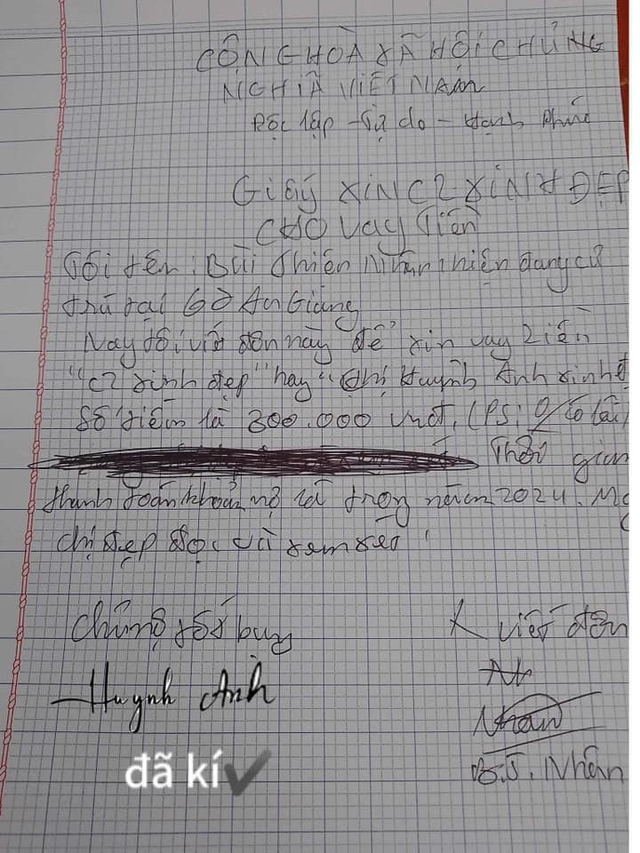 CÔNG HOÀ XÃ HÔI CHỦNG
NGHĨA VIỆT NAM
Độc lập - Tự do - Hạnh Phúc
Giấy XIN C2 XINH ĐẸP
CHO vay tiền
Tôi tên: Bùi Thiện Nhân hiện đang cư
trú tại Gò An Giang
Nay tôi viết đơn này để xin vay tiền
"c2 xinh đẹp" hay "chị Huỳnh Anh xinh đ
Số tiềm là 300.000 vnđ. (PS: 0/
Thời gian
thanh toán khoản nợ là trong năm 2024. Mo
chị đẹp đọc và xem xéo
Chứng tớ buy
X viết đơn
Huynh Anh
Nhân
B.T. Nhân
đã kí✔